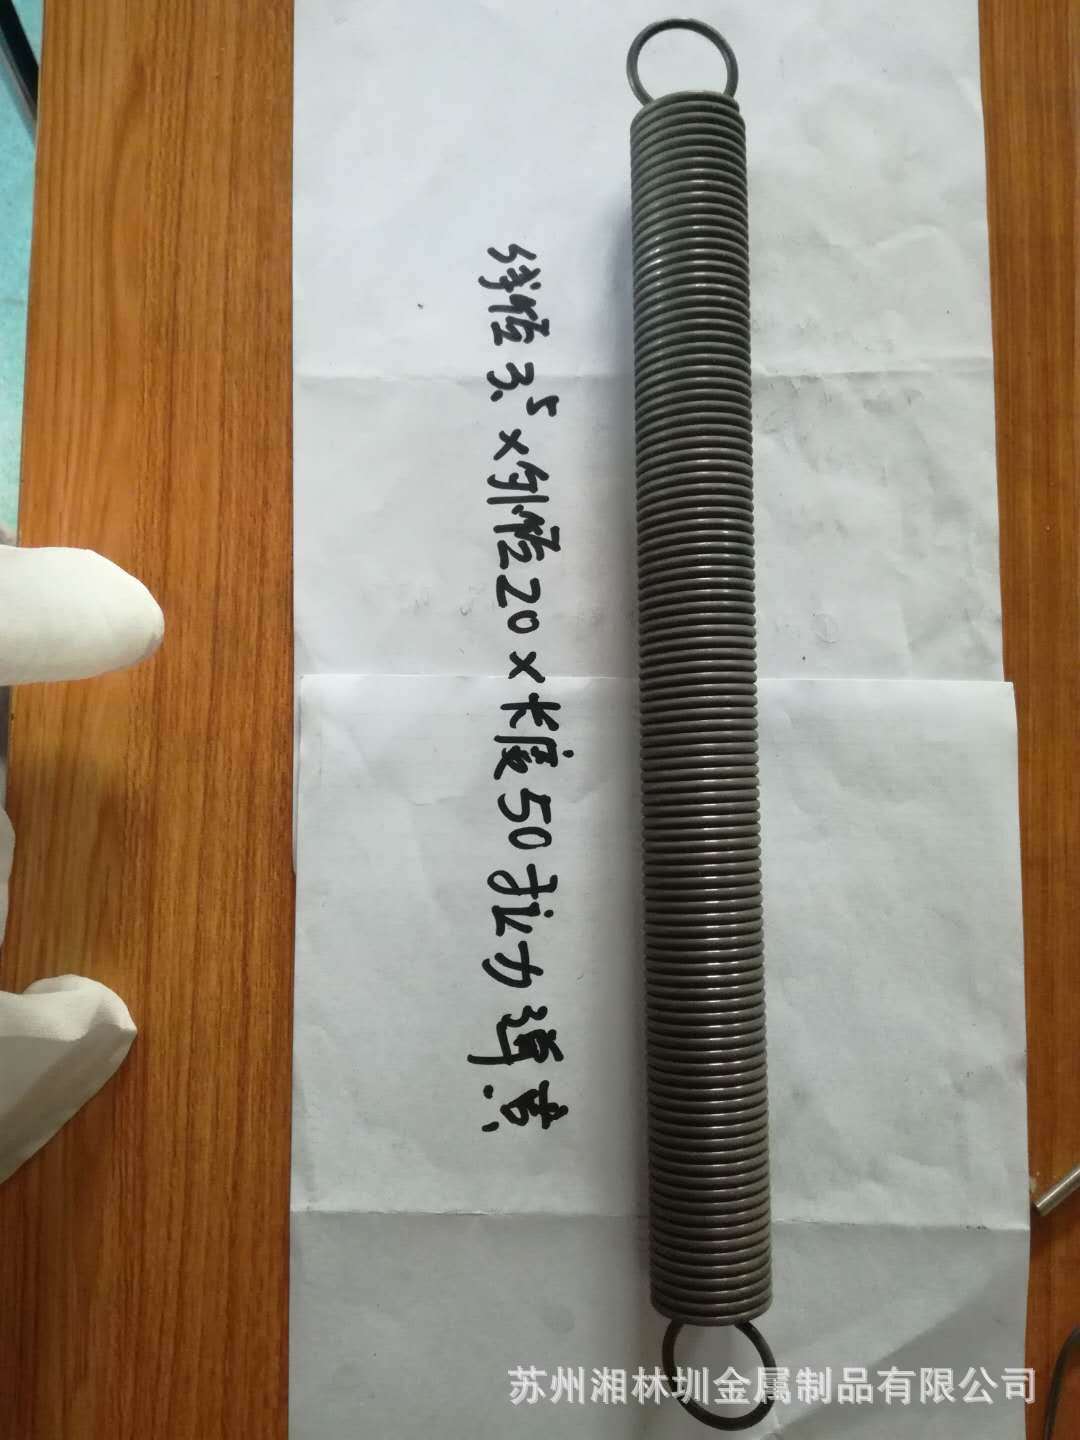 线径3.5×外径20×长度50拉力弹簧
苏州湘林圳金属制品有限公司